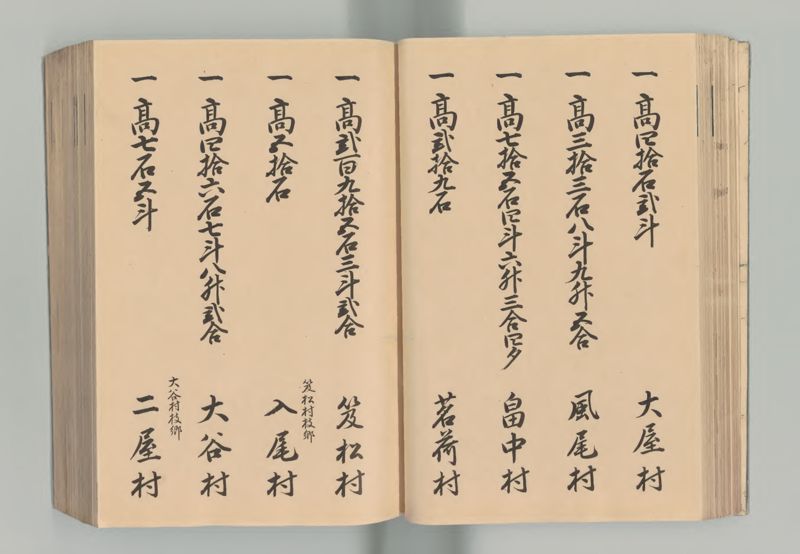 一 髙四拾石弐斗 大屋村
一 髙三拾三石八斗九升五合 風尾村
一 髙七拾五石四斗六升三合四夕 畠中村
一 髙弐拾九石 茗荷村
一 髙弐百九拾五石三斗弐合 笈松村
笈松村枝郷
一 髙五拾石 入尾村
一 髙四拾六石七斗八升弐合 大谷村
大谷村枝郷
一 髙七石五斗 二屋村